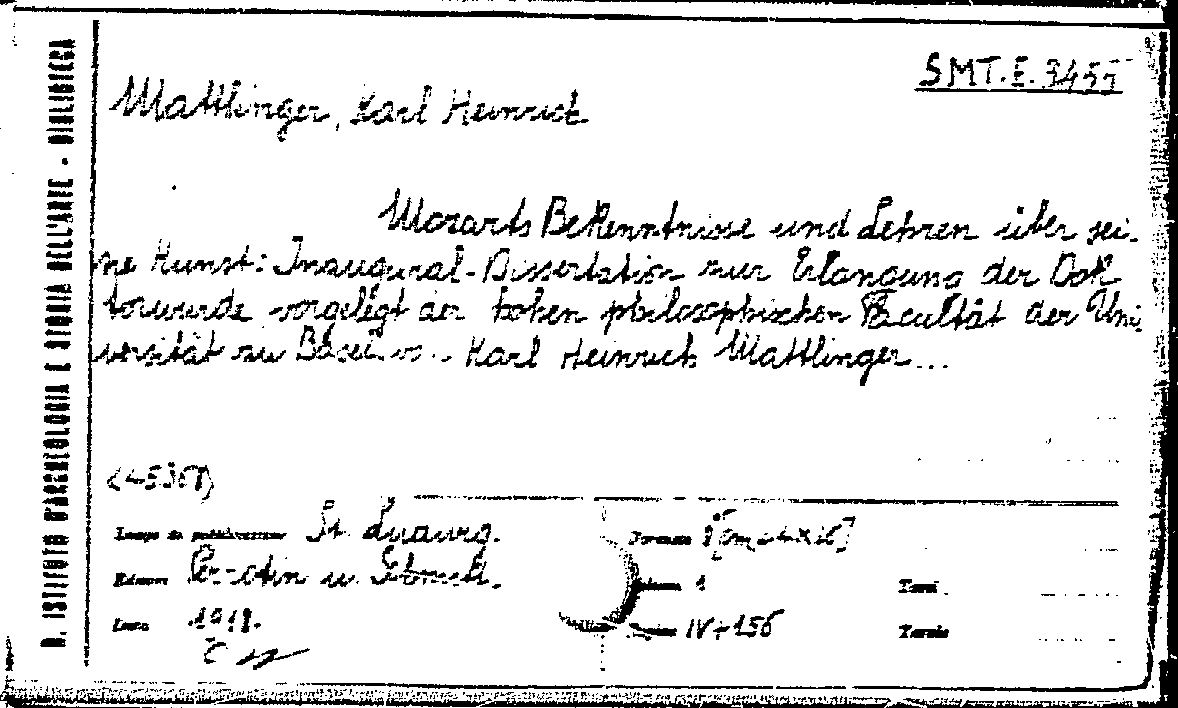 R. ISTITUTO D'ARCHEOLOGIA E STORIA DELL'ARTE - BIBLIOTECA
SMT.E.3455
Mattlinger, Karl Heinrich
Mozarts Bekenntnisse und Lehren über sei-
ne Kunst: Inaugural-Dissertation zur Erlangung der Dok
torwürde vorgelegt der hohen philosophischen Facultät der Uni
versität zu Basel Karl Heinrich Mattlinger...
Luogo di pubblicazione St.
Formato
Editore u.
Volume 1
Tomi
Data 1918.
Pagine IV+156
Tavole